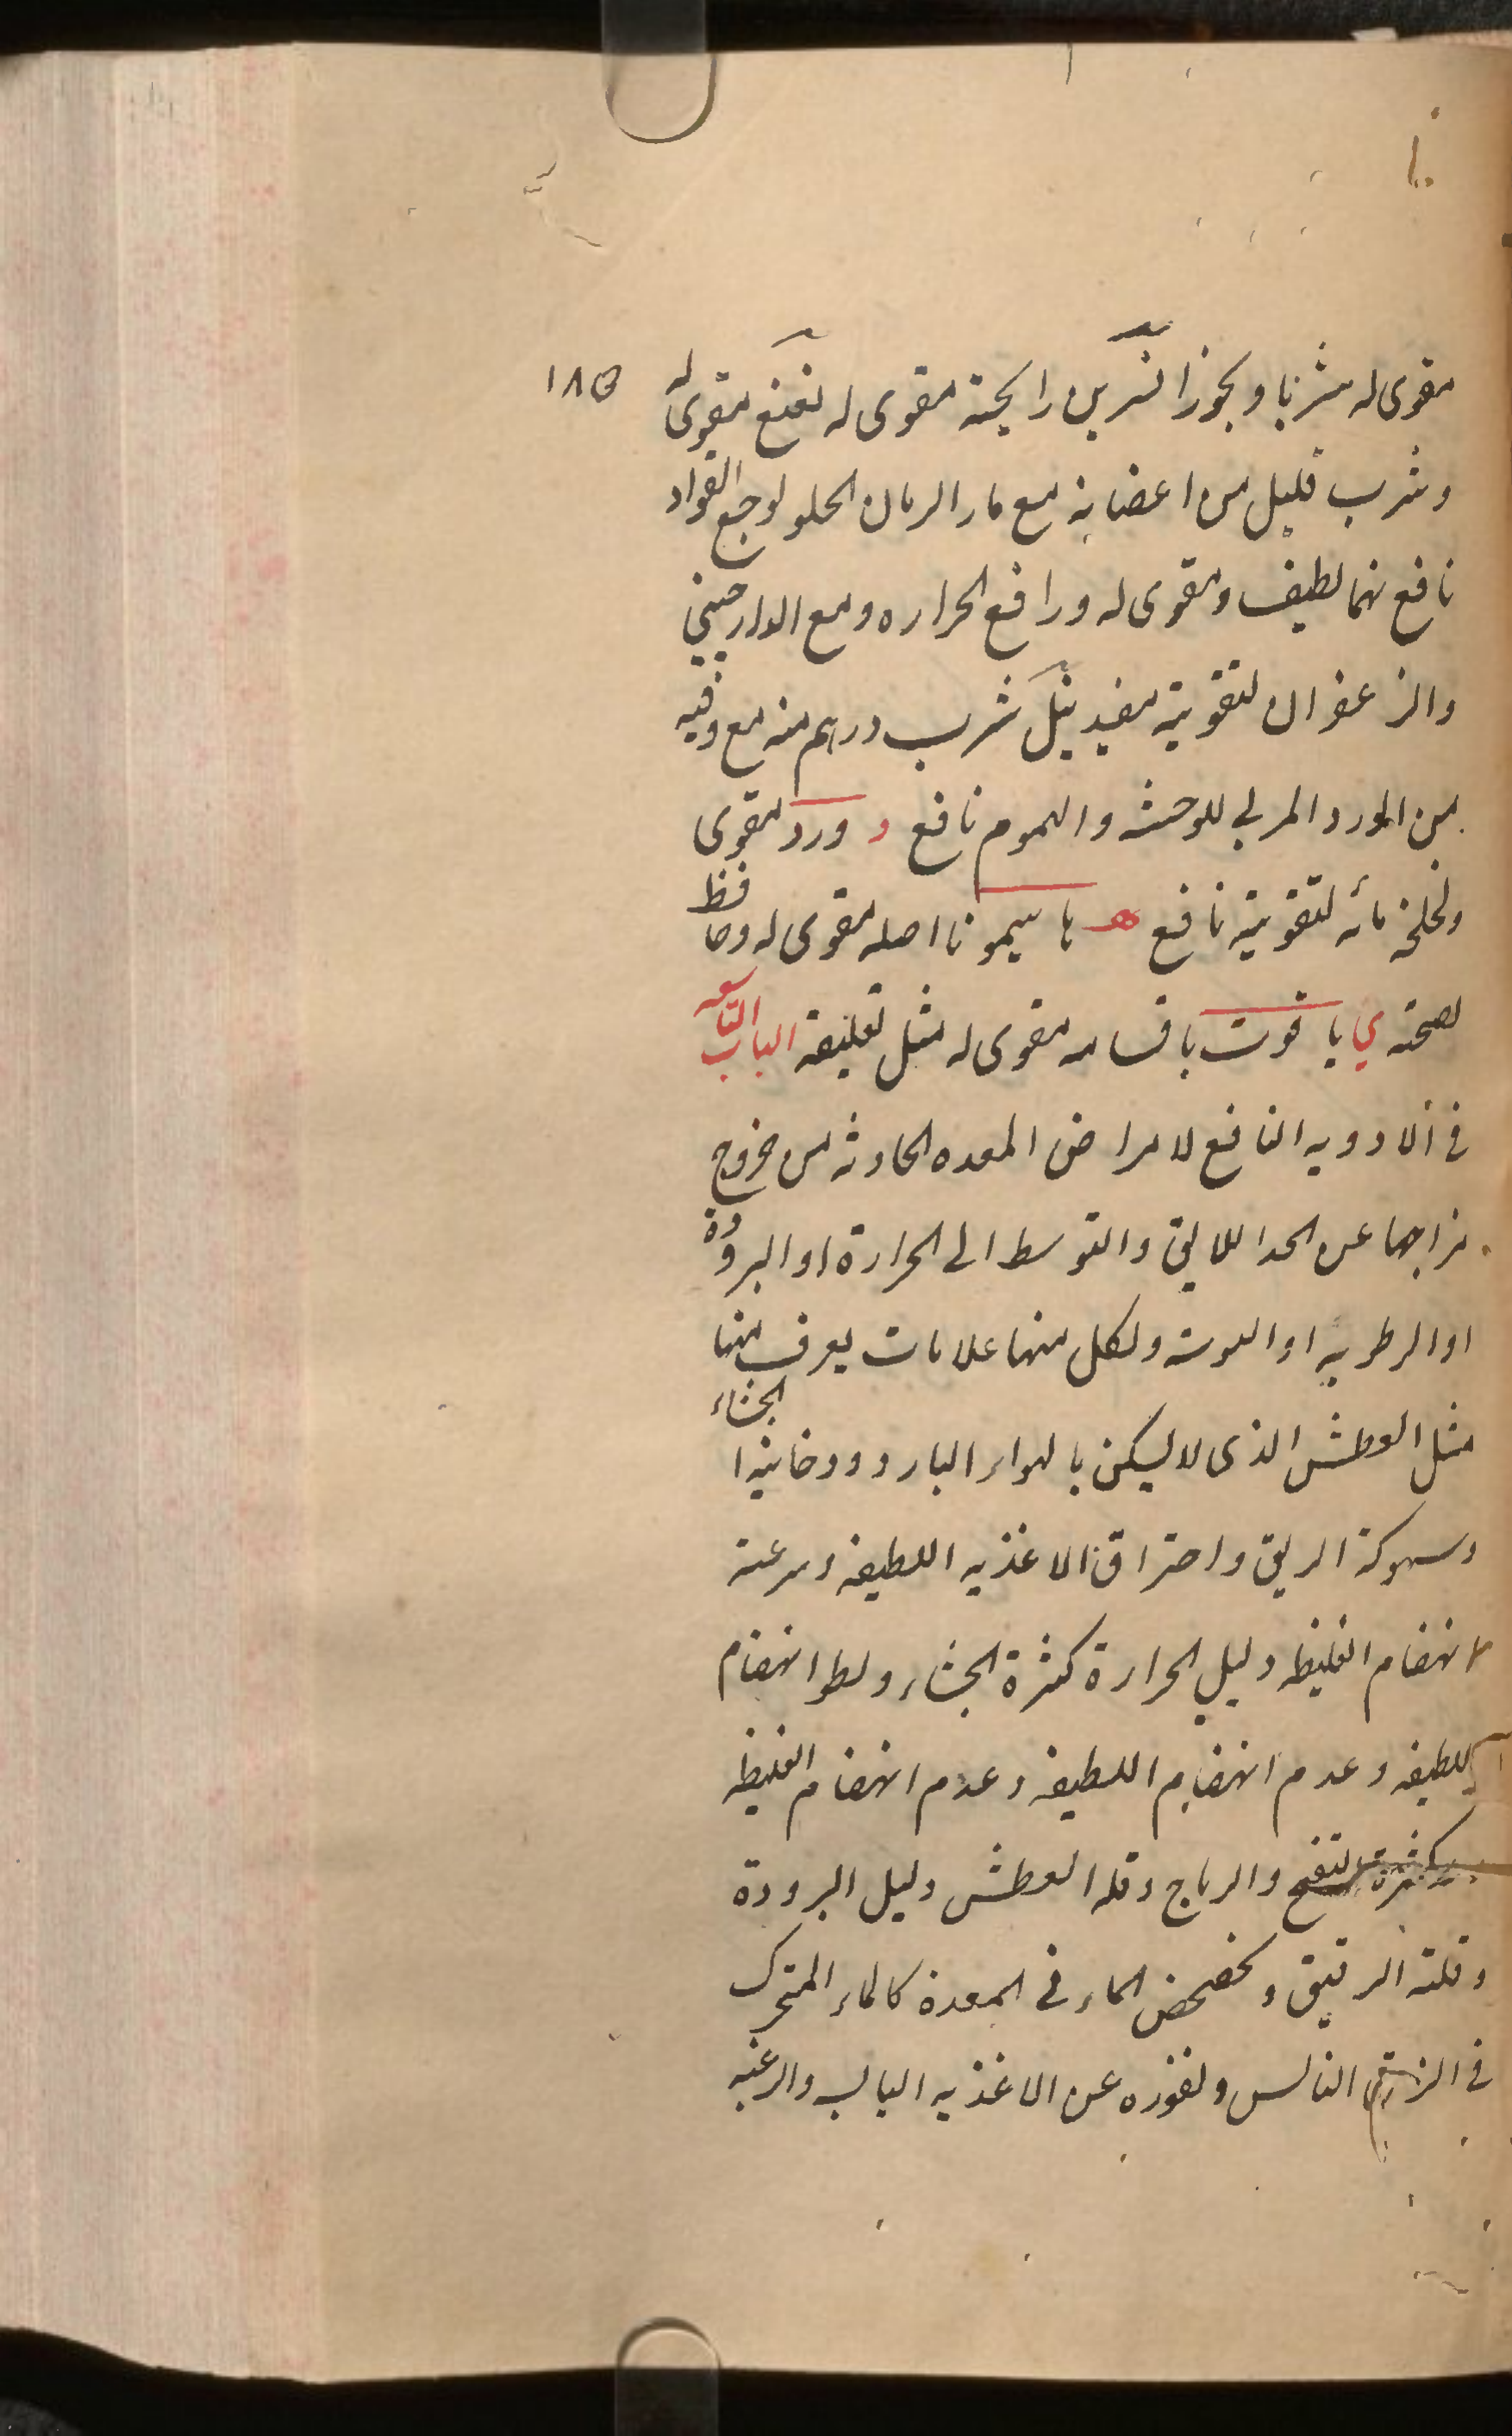 ١٨٥
مقوى له شربا وبخورا نسرين رايحته مقوى له نعنع مقوى له
وشرب قليل من اعضانه مع مار الرمان الحلو لوجع الفواد
نافع نمالطيف ومقوى له ورافع الحراره ومع الدارجيني
والزعفران لتقويته مفيد نيل شرب درهم منه مع وقيه
من الورد المربى للوحشه والهموم نافع و ورد مقوى
ولخلخة مائه لتقويته نافع هـ هاسيمونا اصله مقوى له وحافظ
لصحته ي ياقوت باقسامه مقوى له مثل تعليقه الباب التاسعه
فى الادويه النافع لامراض المعده الحادثه من خروج
مزاجها عن الحد اللايق والتوسط الى الحرارة او البرودة
او الرطوبه او اليبوسه ولكل منها علامات يعرف منها
مثل العطش الذى لا يسكن بالهواء البارد ودخانية الجشاء
وسهوكة الريق واحتراق الاغذيه اللطيفه وسرعته
انهضام الغليظه دليل الحرارة كثرة الجشاء وبطو انهضام
اللطيفه وعدم انهضام اللطيفه وعدم انهضام الغليظه
وكثرة النفخ والرياح وقله العطش دليل البرودة
وقلته الرقيق وتخضخض الماء فى المعدة كالماء المتحرك
فى الزق النالس ونفوره عن الاغذيه اليابسه والرغبه